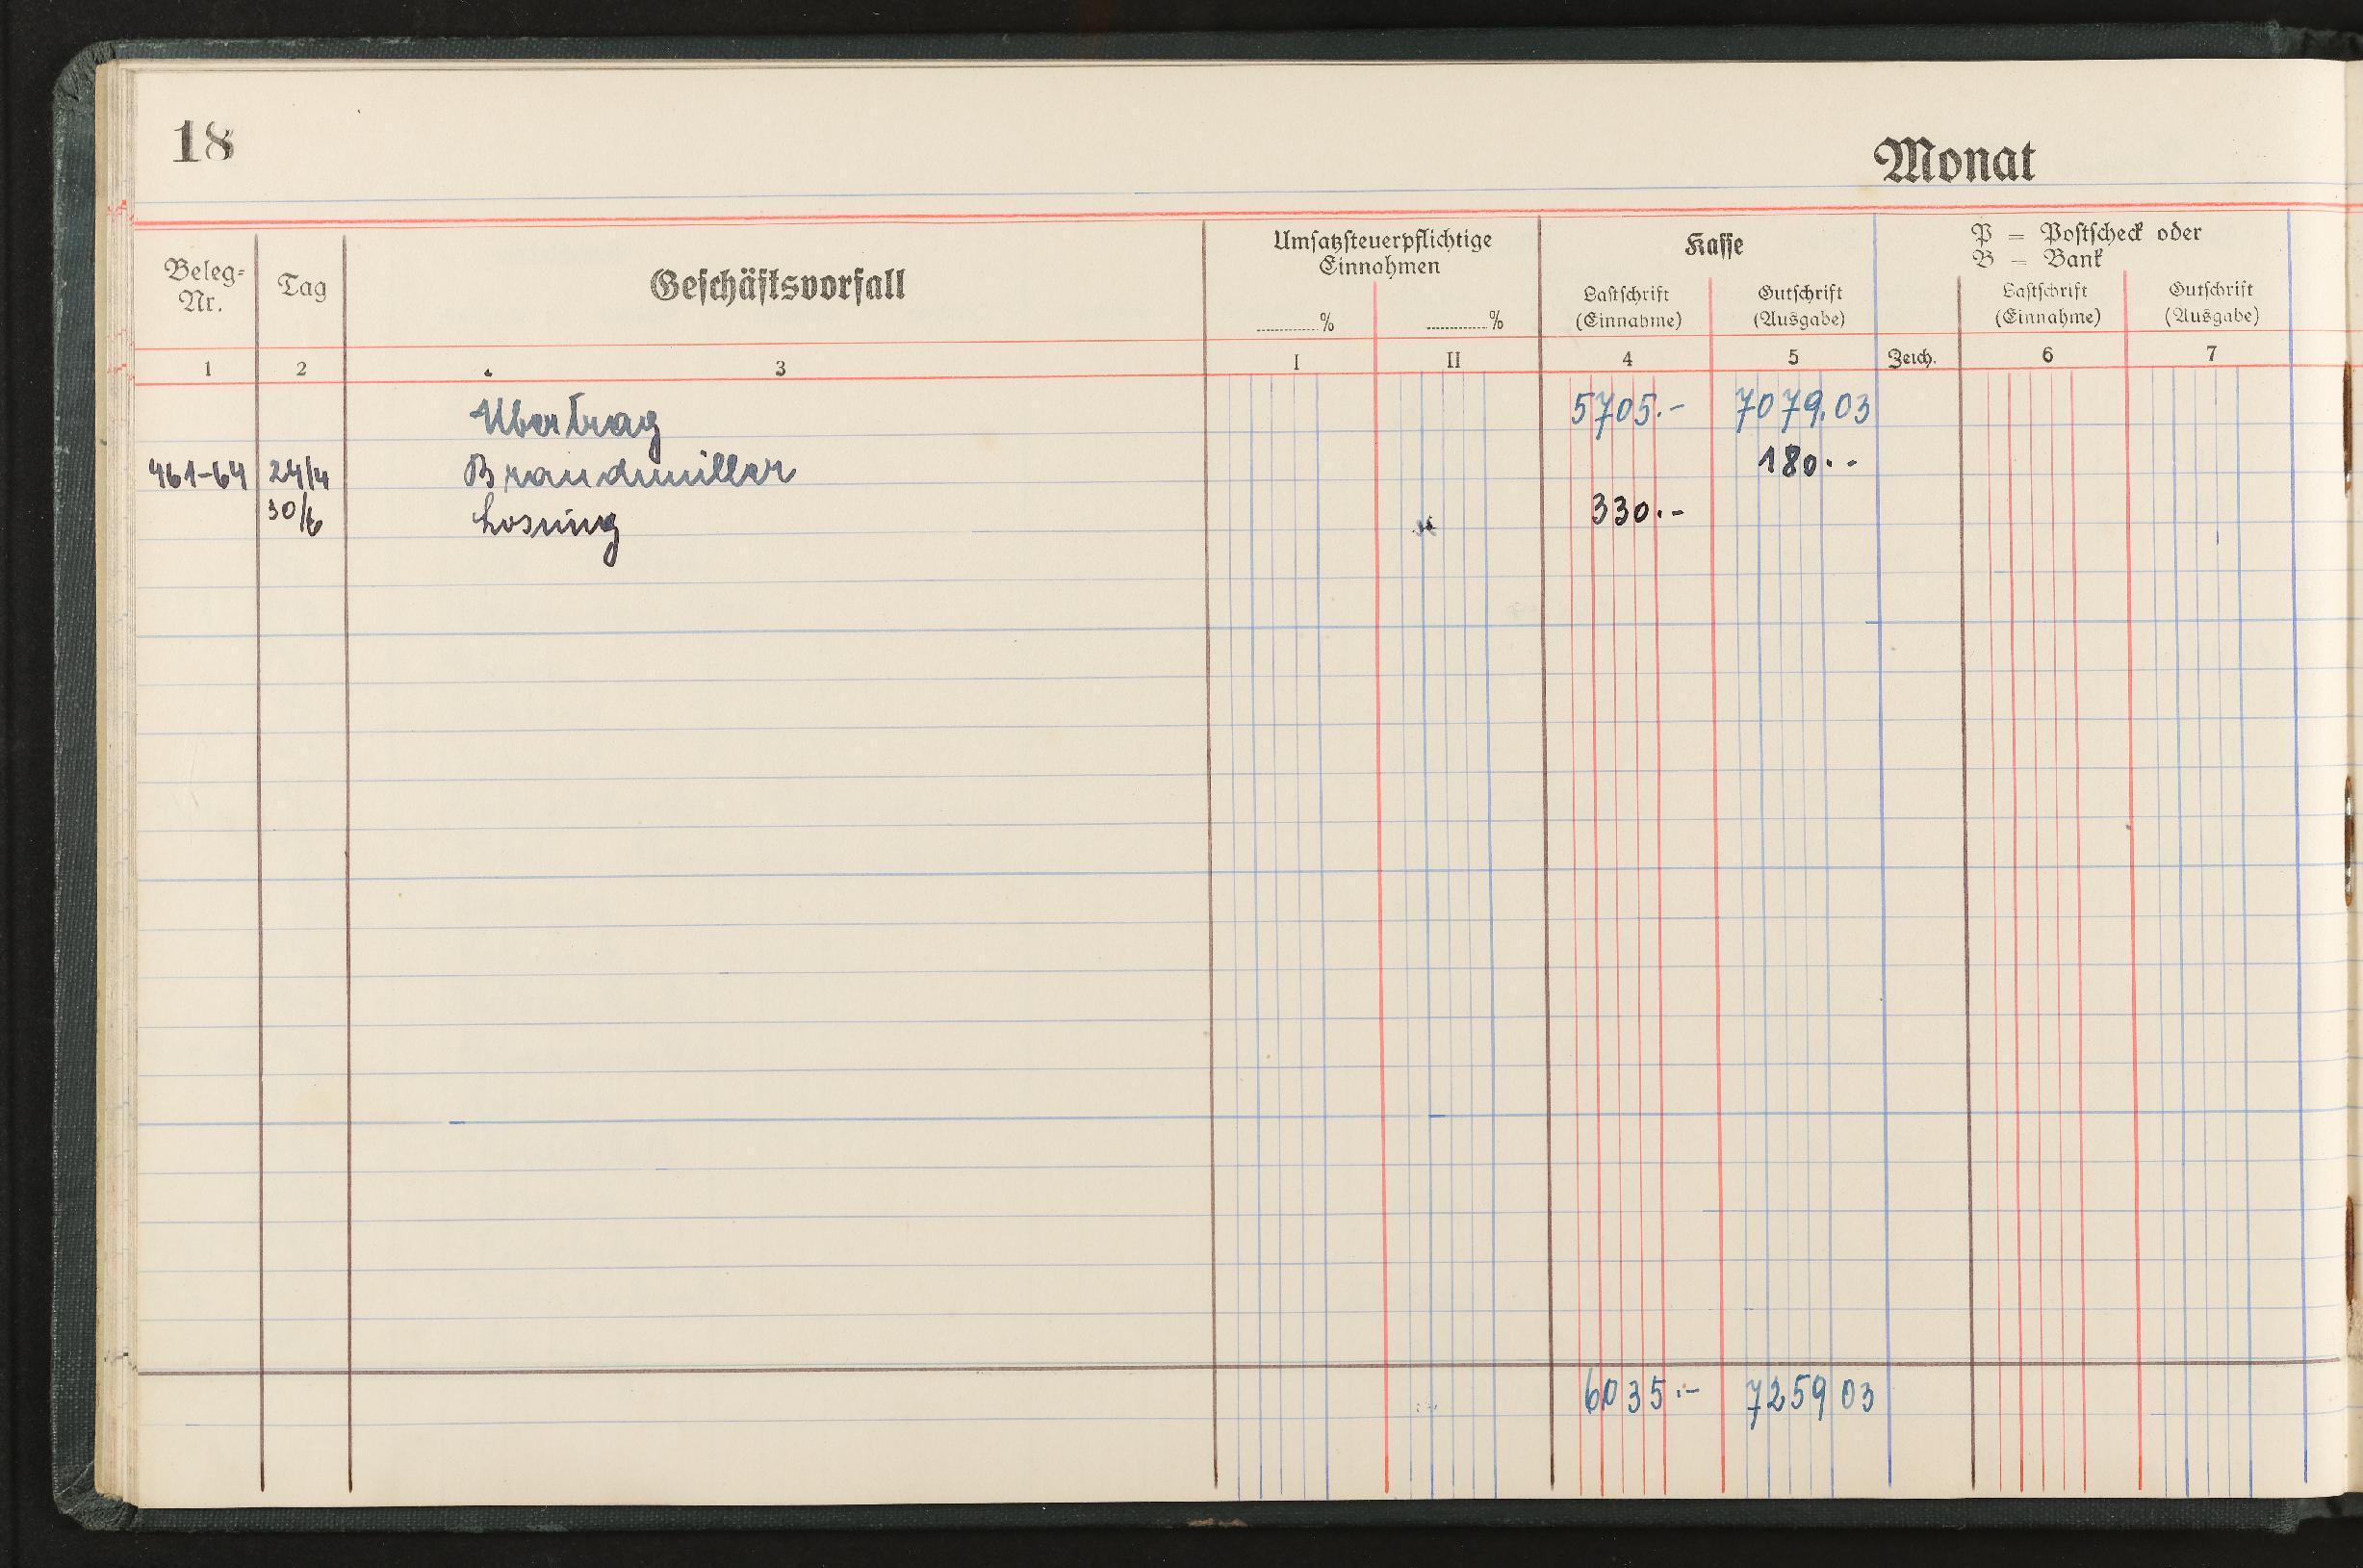 18
Monat
Beleg-Nr. Tag Geschäftsvorfall Umsatzsteuerpflichtige Einnahmen Kasse P = Postscheck oder B = Bank
% % Lastschrift (Einnahme) Gutschrift (Ausgabe) Lastschrift (Einnahme) Gutschrift (Ausgabe)
1 2 3 I II 4 5 Zeich. 6 7
Ubertrag 5705.- 7079.03
461-64 24/4 Brandmiller 180.-
30/6 Losung 330.-
6035.- 7259 03